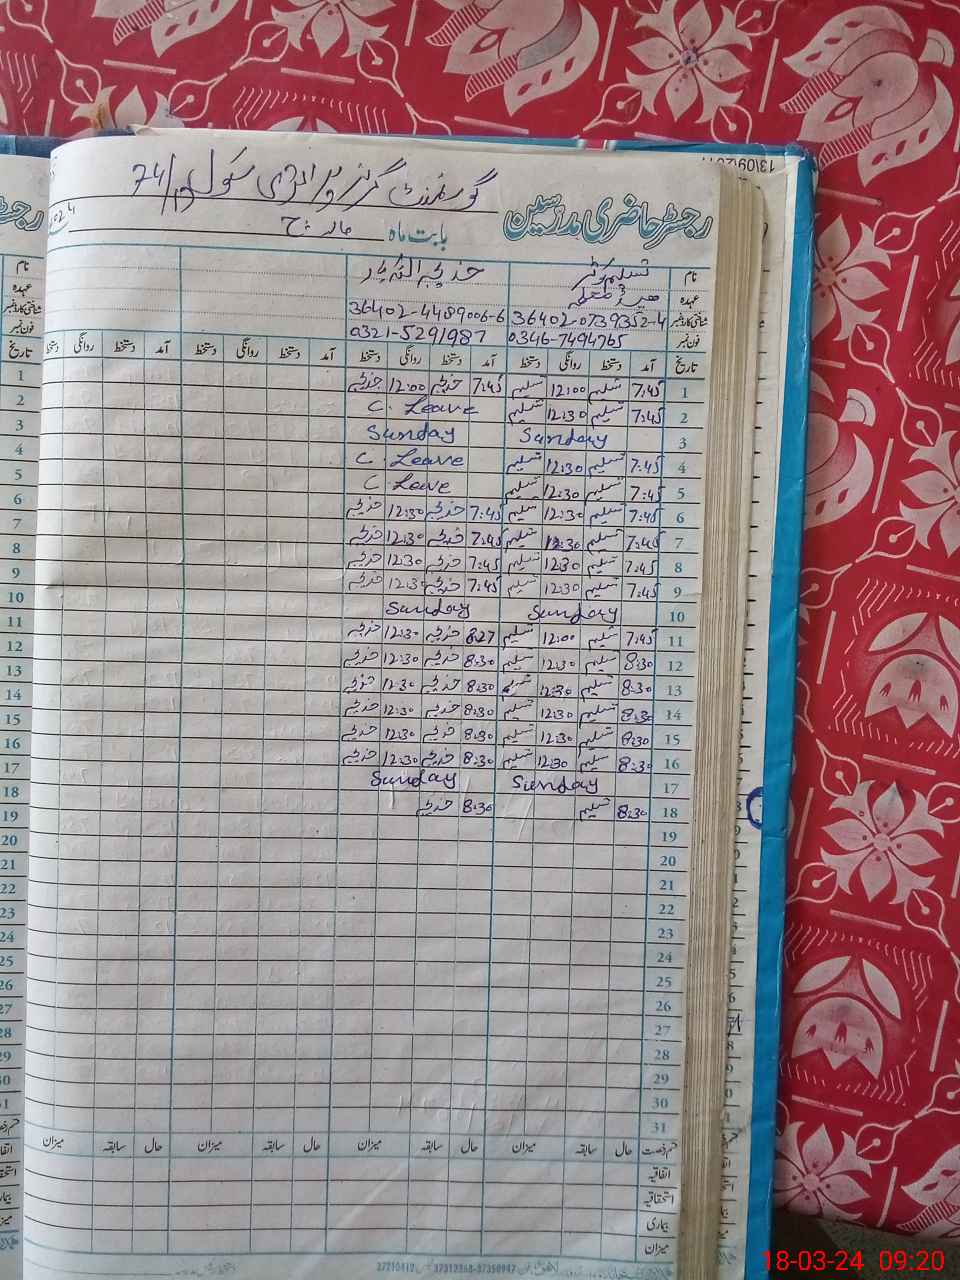 13\09\20
گورنمنٹ گرلز پرائمری سکول 74/D
رجسٹر حاضری مدرسین
بابت ماہ مارچ
نام تسلیم کوثر خدیجہ الکبریٰ
عہدہ ہیڈ معلمہ
شناختی کارڈ نمبر 36402-0739352-4 36402-4489006-6
فون نمبر 0346-7494765 0321-5291987
تاریخ آمد دستخط روانگی دستخط آمد دستخط روانگی دستخط آمد دستخط روانگی دستخط آمد دستخط روانگی دستخط
1 7:45 تسلیم 12:00 تسلیم 7:45 خدیجہ 12:00 خدیجہ
2 7:45 تسلیم 12:30 تسلیم C. Leave
3 Sunday Sunday
4 7:45 تسلیم 12:30 تسلیم C. Leave
5 7:45 تسلیم 12:30 تسلیم C. Leave
6 7:45 تسلیم 12:30 تسلیم 7:45 خدیجہ 12:30 خدیجہ
7 7:45 تسلیم 12:30 تسلیم 7:45 خدیجہ 12:30 خدیجہ
8 7:45 تسلیم 12:30 تسلیم 7:45 خدیجہ 12:30 خدیجہ
9 7:45 تسلیم 12:30 تسلیم 7:45 خدیجہ 12:30 خدیجہ
10 Sunday Sunday
11 7:45 تسلیم 12:00 تسلیم 8:27 خدیجہ 12:30 خدیجہ
12 8:30 تسلیم 12:30 تسلیم 8:30 خدیجہ 12:30 خدیجہ
13 8:30 تسلیم 12:30 تسلیم 8:30 خدیجہ 12:30 خدیجہ
14 8:30 تسلیم 12:30 تسلیم 8:30 خدیجہ 12:30 خدیجہ
15 8:30 تسلیم 12:30 تسلیم 8:30 خدیجہ 12:30 خدیجہ
16 8:30 تسلیم 12:30 تسلیم 8:30 خدیجہ 12:30 خدیجہ
17 Sunday Sunday
18 8:30 تسلیم 8:30 خدیجہ
19
20
21
22
23
24
25
26
27
28
29
30
31
قسم رخصت حال سابقہ میزان حال سابقہ میزان حال سابقہ میزان حال سابقہ میزان
اتفاقیہ
استحقاقیہ
بیماری
میزان
18-03-24 09:20